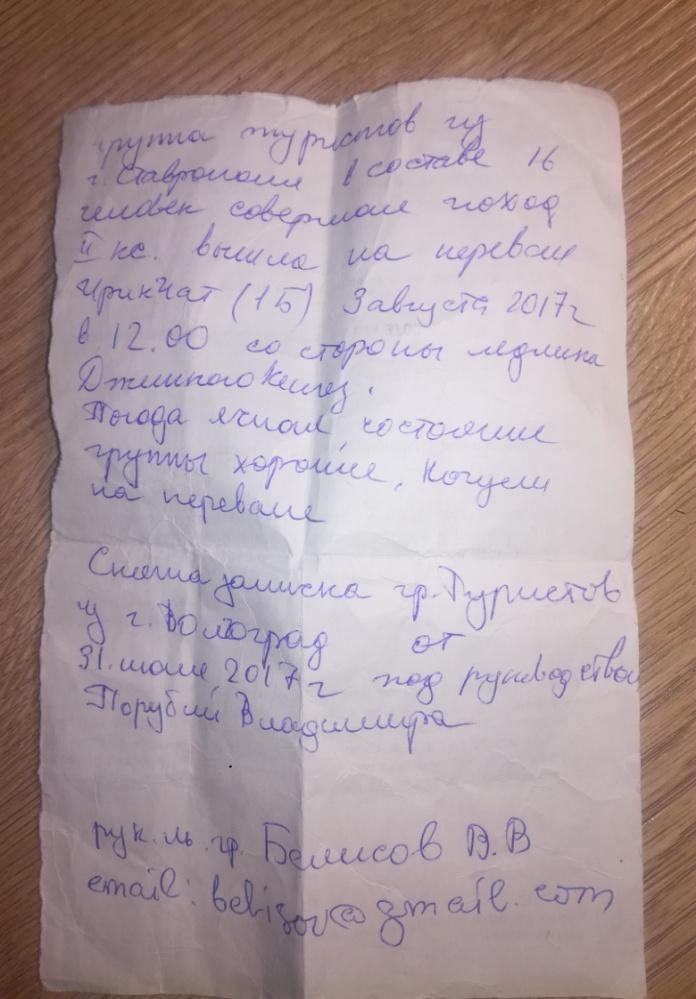 группа туристов из
г. Ставрополя в составе 16
человек совершая поход
II кс. вышла на перевал
Ирикчат (1Б) 3 августа 2017г
в 12.00 со стороны ледника
Погода ясная, состояние
группы хорошее, Ночуем
на перевале
Снята записка гр. Туристов
из г. Волгоград от
31. июля 2017 г под руководством
Владимира
рук.ль. гр. Белисов В.В
email: @gmail.com